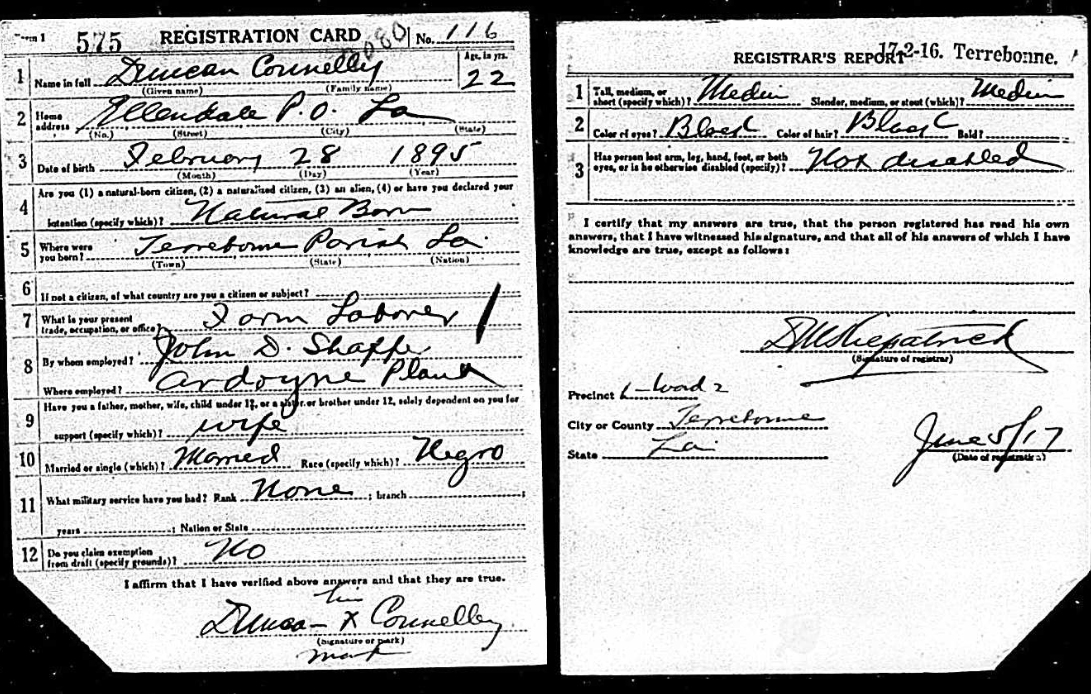 Form 1 575 REGISTRATION CARD No. 116
1 Name in full Duncan Connelly Age, in yrs. 22
(Given name) (Family name)
2 Home address Ellendale P.O. La
(No.) (Street) (City) (State)
3 Date of birth February 28 1895
(Month) (Day) (Year)
4 Are you (1) a natural-born citizen, (2) a naturalized citizen, (3) an alien, (4) or have you declared your
intention (specify which)? Natural Born
5 Where were you born? Terrebonne Parish La
(Town) (State) (Nation)
6 If not a citizen, of what country are you a citizen or subject?
7 What is your present trade, occupation, or office? Farm Laborer
8 By whom employed? John D. Shaffer
Where employed? Ardoyne Plant
9 Have you a father, mother, wife, child under 12, or a sister or brother under 12, solely dependent on you for
support (specify which)? wife
10 Married or single (which)? Married Race (specify which)? Negro
11 What military service have you had? Rank None ; branch ;
years ; Nation or State
12 Do you claim exemption from draft (specify grounds)? No
I affirm that I have verified above answers and that they are true.
his
Duncan X Connelley
(Signature or mark)
mark
17-2-16. Terrebonne.
REGISTRAR'S REPORT
1 Tall, medium, or short (specify which)? Medim Slender, medium, or stout (which)? Medim
2 Color of eyes? Black Color of hair? Black Bald?
3 Has person lost arm, leg, hand, foot, or both eyes, or is he otherwise disabled (specify)? Not disabled
I certify that my answers are true, that the person registered has read his own
answers, that I have witnessed his signature, and that all of his answers of which I have
knowledge are true, except as follows:
(Signature of registrar)
Precinct 1-Ward 2
City or County Terrebonne
State La
June 5/17
(Date of registration)